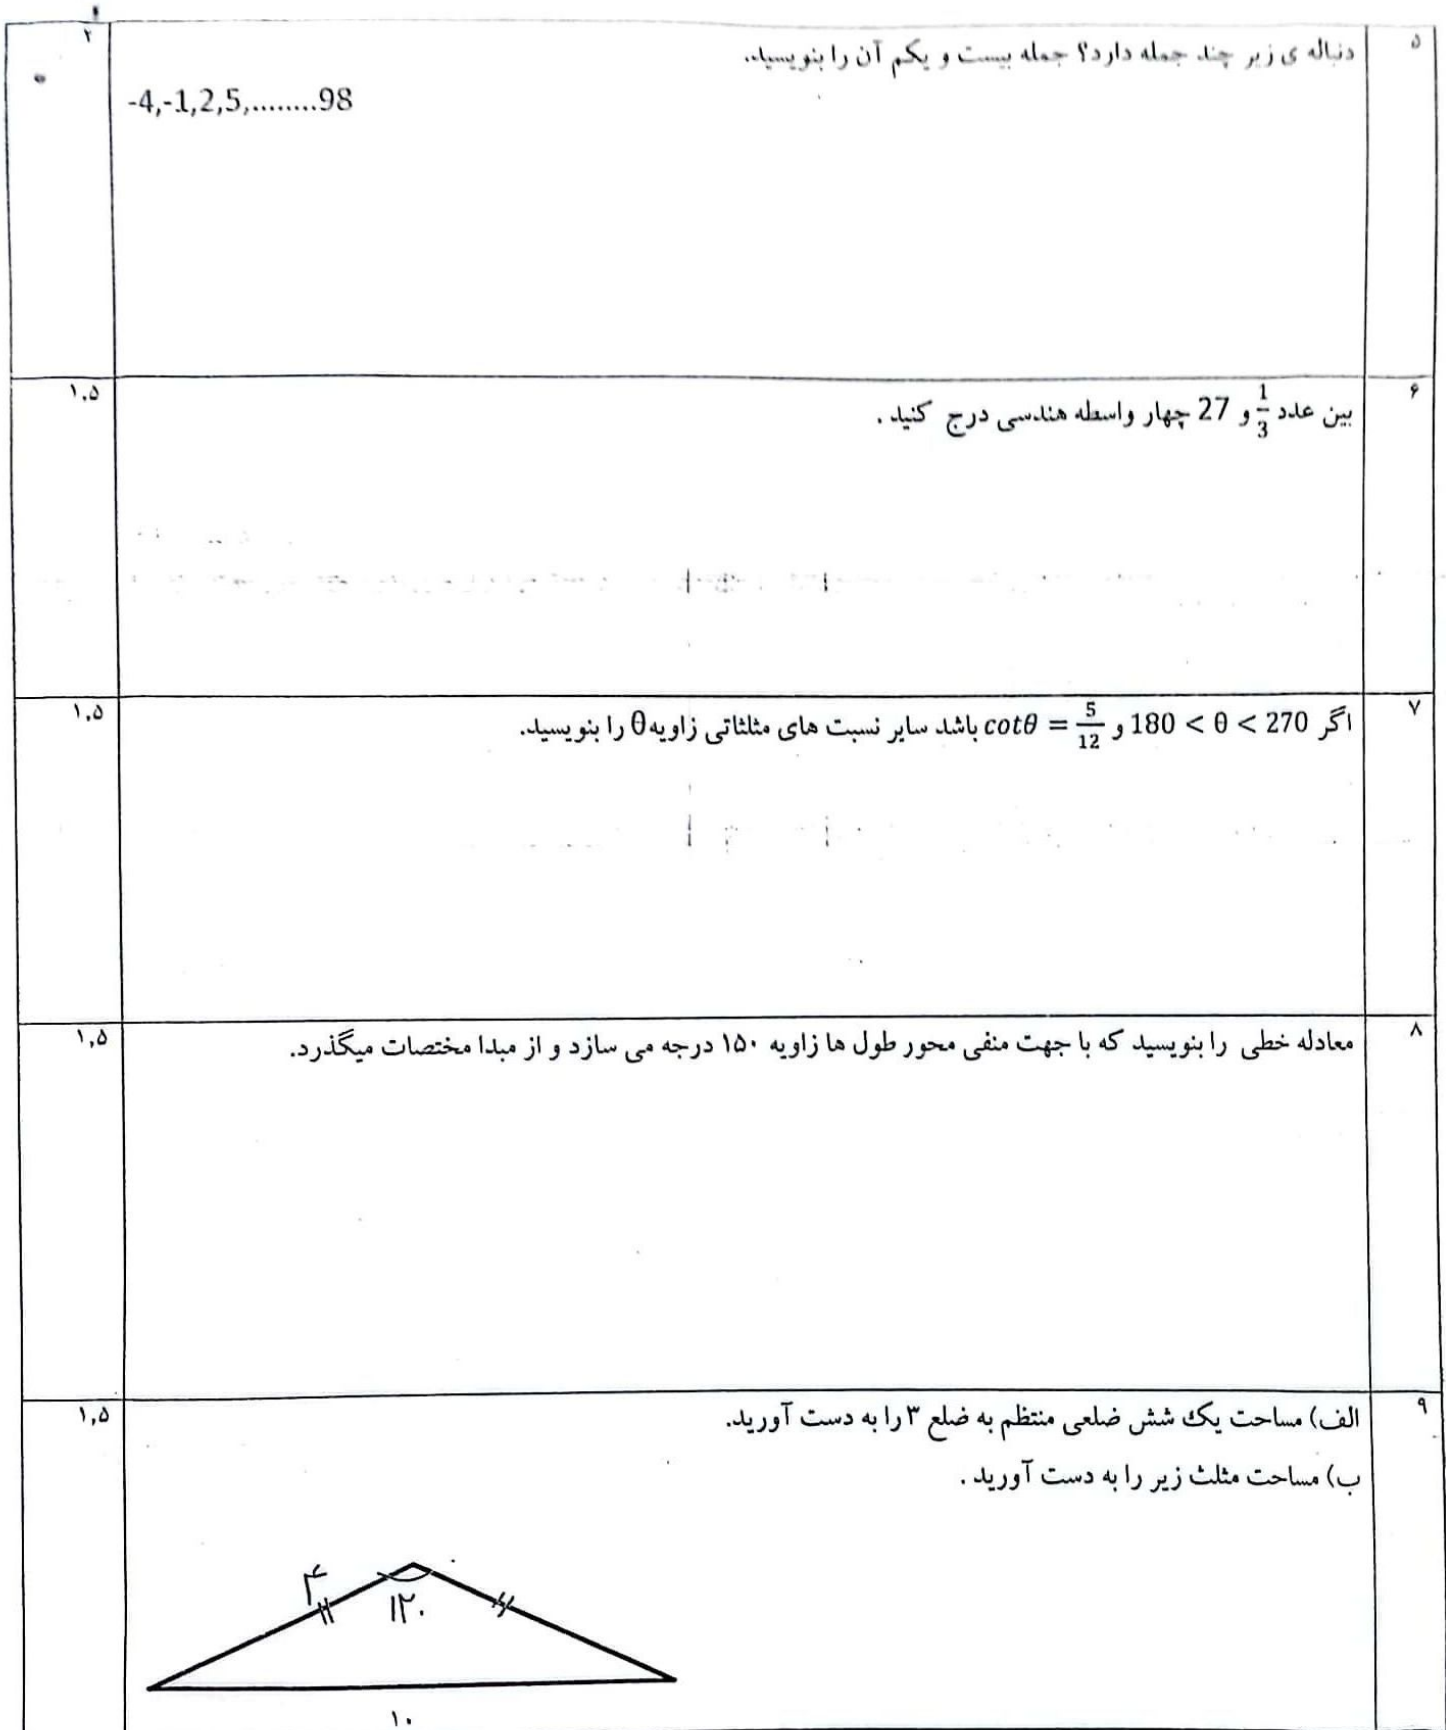 ۵
دنباله ی زیر چند جمله دارد؟ جمله بیست و یکم آن را بنویسید.
۲
-4,-1,2,5,........98
۶
بین عدد 1/3 و 27 چهار واسطه هندسی درج کنید .
۱,۵
۷
اگر 180 < θ < 270 و cotθ = 5/12 باشد سایر نسبت های مثلثاتی زاویه θ را بنویسید.
۱,۵
۸
معادله خطی را بنویسید که با جهت منفی محور طول ها زاویه ۱۵۰ درجه می سازد و از مبدا مختصات میگذرد.
۱,۵
۹
الف) مساحت یک شش ضلعی منتظم به ضلع ۳ را به دست آورید.
۱,۵
ب) مساحت مثلث زیر را به دست آورید .
۴
۱۲۰
۱۰